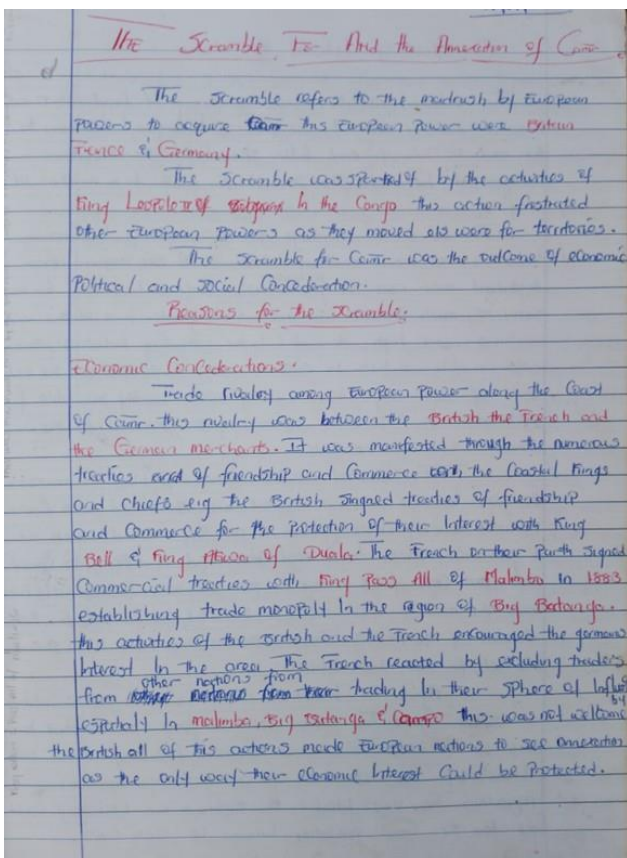 THE Scramble For And the Annexation of Camr.
The scramble refers to the madrush by European
powers to acquire Cam this European Power were Britain
France & Germany.
The scramble was sparked of by the activities of
King Leopold II of in the Congo this action frustrated
other European Powers as they moved els were for territories.
The scramble for Camr was the outcome of economic
Political and social Concederation.
Reasons for the scramble.
Economic Concederations.
Trade rivalry among European Power along the Coast
of Camr. this rivalry was between the British the French and
the German merchants. It was manifested through the numerous
treaties and of friendship and Commerce with the Coastal Kings
and chiefs e.g the British Singned treaties of friendship
and Commerce for the Protection of their Interest with King
Bell & King Akwa of Duala. The French on their Parth signed
Commercial treaties with King Pass All of Malimba in 1883
establishing trade monopoly In the region of Big Batanga.
this activities of the British and the French encouraged the germans
Interest In the area. The French reacted by excluding traders
other nations from
from trading In their sphere of Influ
espertialy In malimba, Big Batanga & Campo this was not wellcome by
the British all of this actions made European nations to see annexation
as the only way their economic Interest Could be Protected.